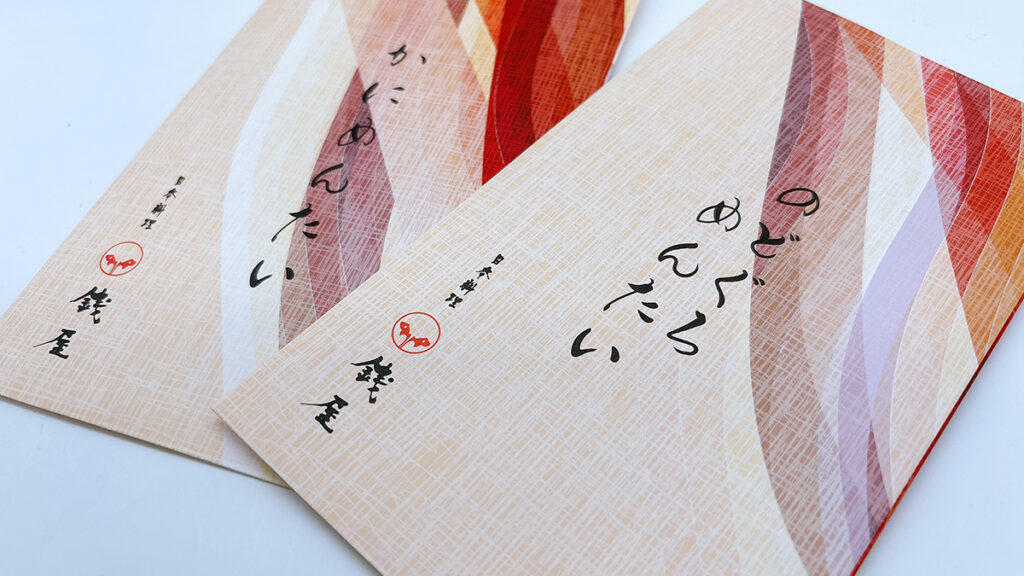 かにめんたい
日本料理
銭屋
のどぐろ
めんたい
日本料理
銭屋